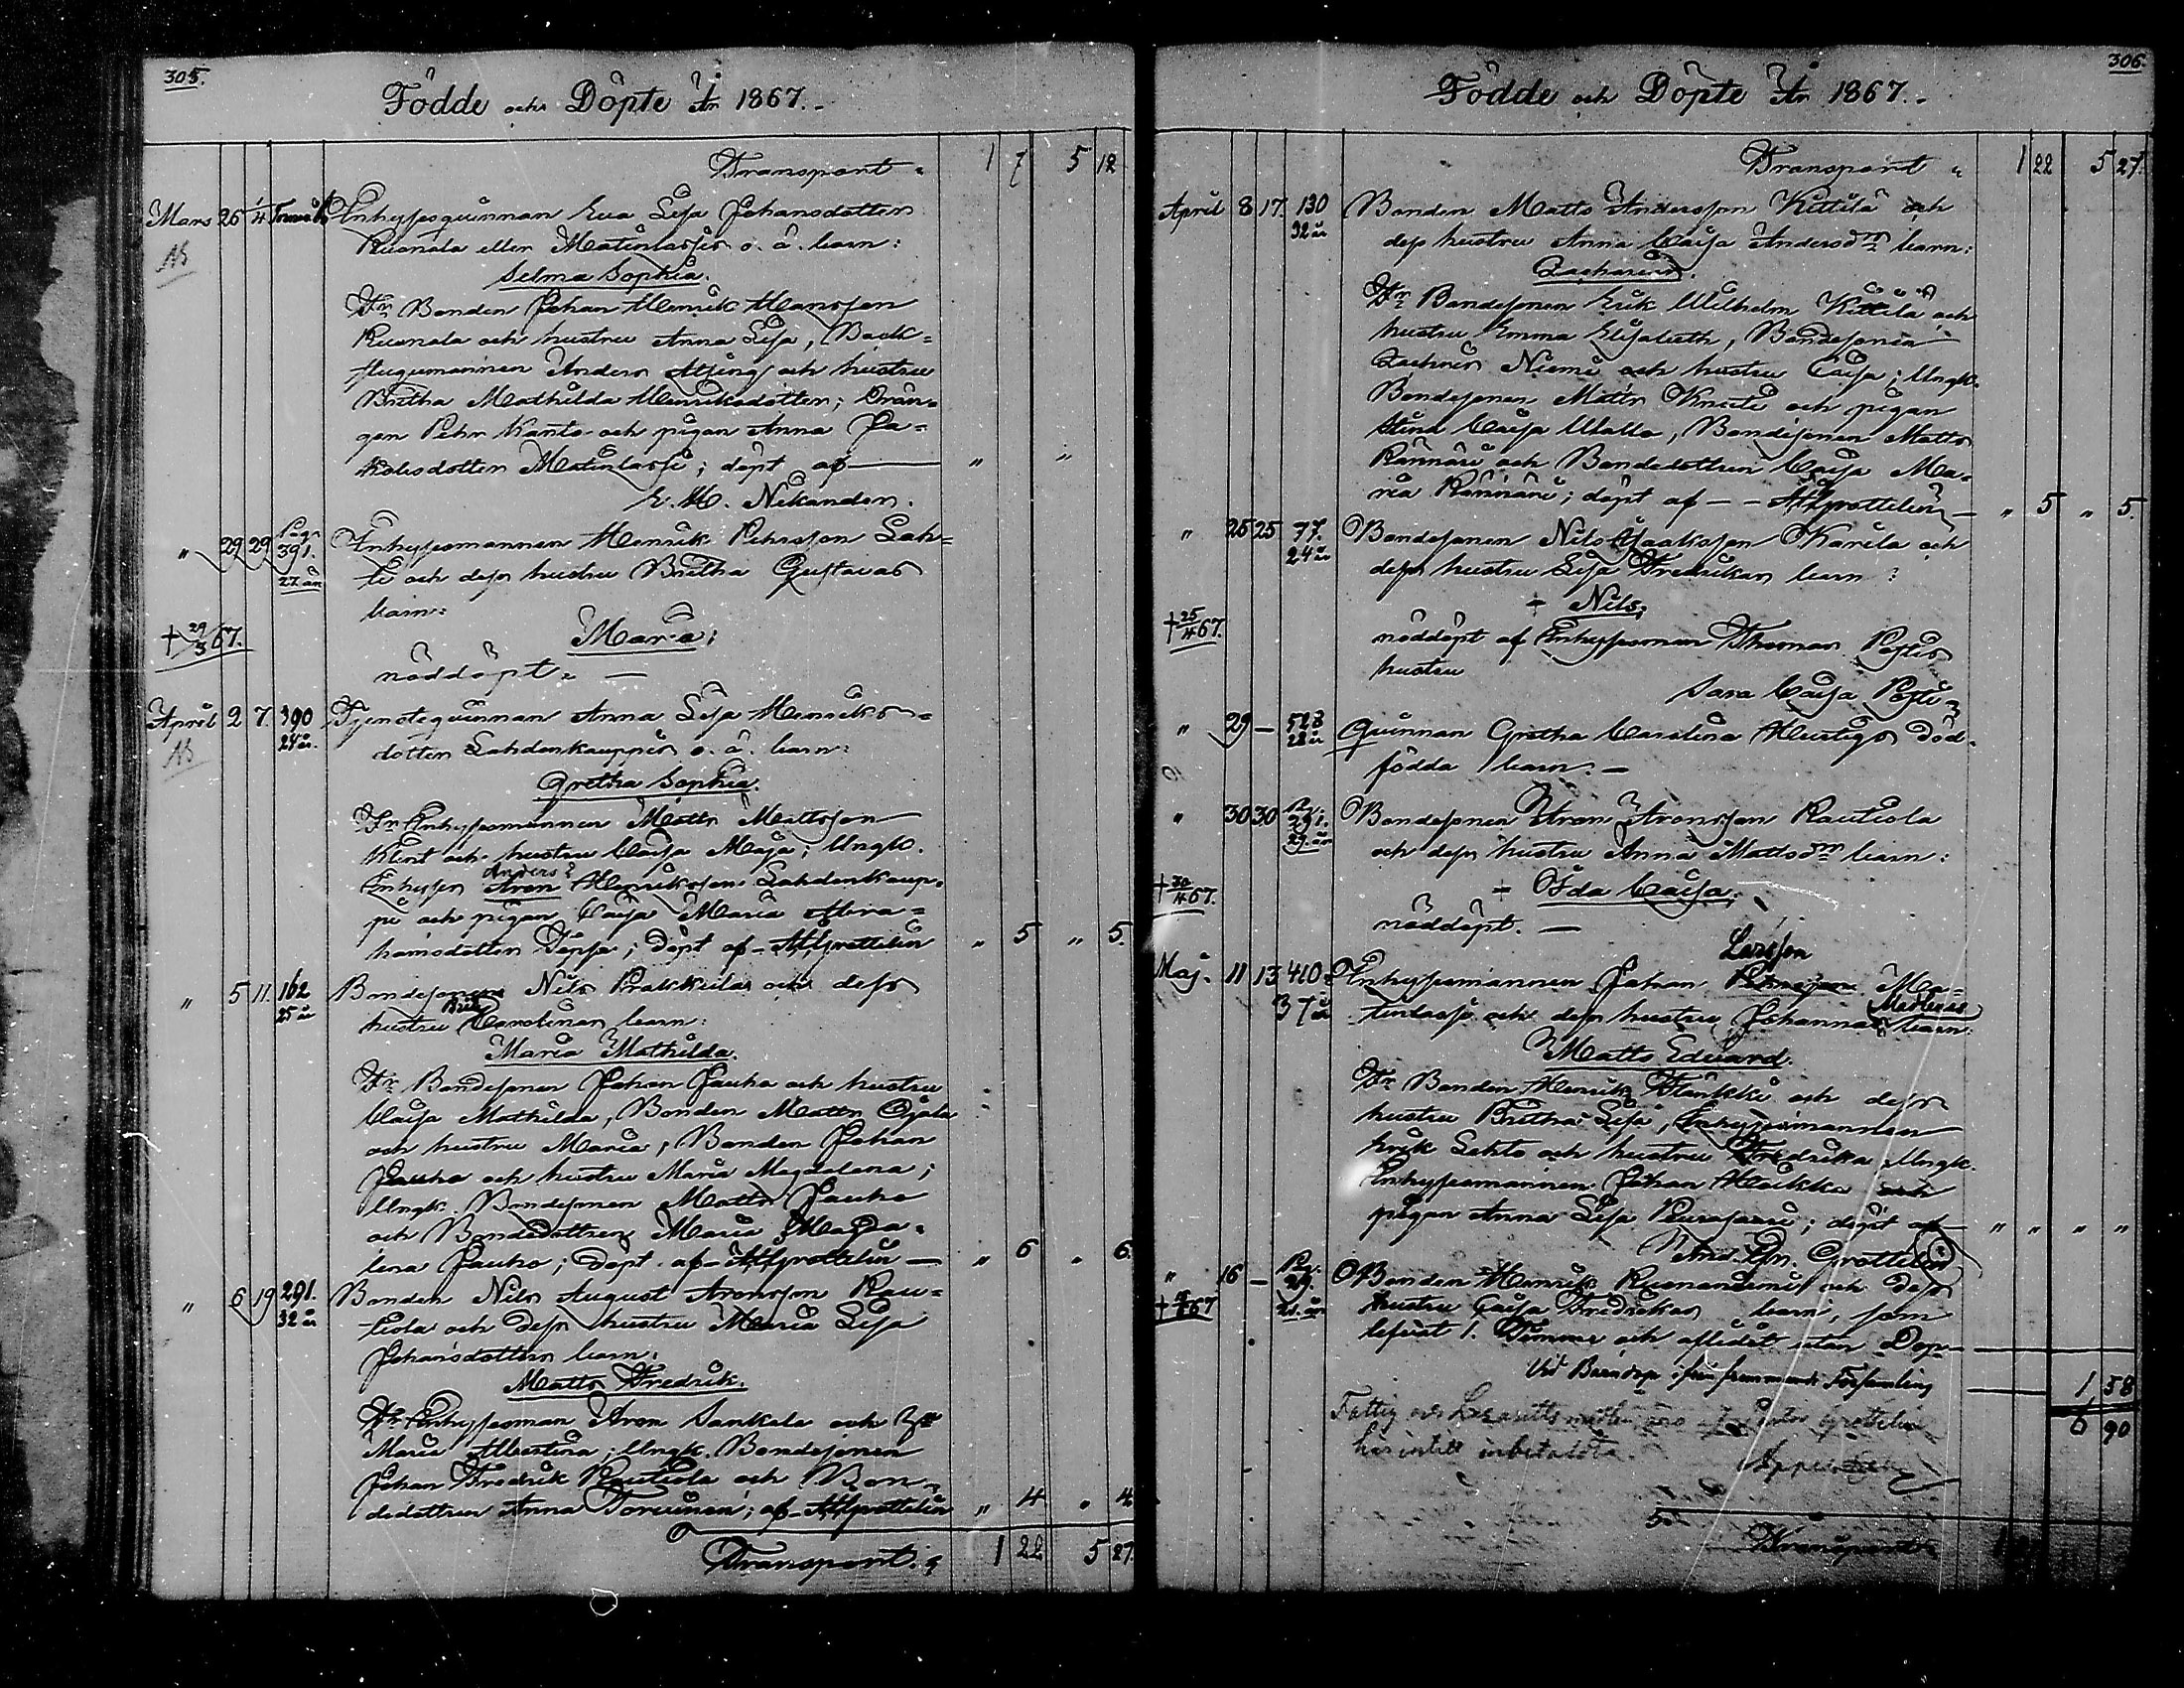 305.
Födde och Döpte År 1867.
Transport 1 7 5 12
Mars 26 Inhyses qvinnan Eva Lisa Johansdotter
Ruonala eller Matinlassis o. ä. barn:
Selma Sophia.
Fr. Bonden Johan Henrik Hansson
Ruonala och hustru Anna Lisa, Back=
stugumannen Anders och hustru
Britha Mathilda Henriksdotter; Drän=
gen Petter Kanto och pigan Anna Ja=
kobsdotter Matinlassi; döpt af — " "
E. W. Nikander.
" 29 29 Pag. 391. 27 år Inhysesmannen Henrik Pehrsson Lah=
ti och dess hustru Britha Gustavas
barn:
† 29/3 67. Maria;
nöddöpt. —
April 2 7. 390 24 år. Tjensteqvinnan Anna Lisa Henriks=
dotter Lahdenkauppis o. ä. barn:
Gretha Sophia.
Fr. Inhysesmannen Matts Mattsson
Klint och hustru Caisa Maja; Ungk.
Anders?
Inhyses Aron Henriksson Lahdenkaup=
pi och pigan Caisa Maria Abra=
hamsdotter ; döpt af — A Grottelin " 5 " 5.
" 5 11. 162 25 år Bondesonen Nils Prakkilas och dess
Brita
hustru Carolinas barn:
Maria Mathilda.
Fr. Bondesonen Johan Jauho och hustru
Caisa Mathilda, Bonden Matts Ojala
och hustru Maria; Bonden Johan
Jauho och hustru Maria Magdalena;
Ungk. Bondesonen Matts Jauho
och Bondedottren Maria Magda=
lena Jauho; döpt af — A Grottelin — " 6 " 6.
" 6 19 291. 32 år Bonden Nils August Aronsson Rau=
tiola och dess hustru Maria Lisa
Johansdotters barn:
Matts Fredrik.
Fr. Inhysesman Aron Sankala och
Maria Albertina; Ungk. Bondesonen
Johan Fredrik Rautiola och Bon=
dedottren Anna Torvinen; af — A Grottelin " 4 " 4.
Transport. 1 22 5 27.
306.
Födde och Döpte År 1867.
Transport 1 22 5 27.
April 8 17. 130 32 år Bonden Matts Andersson Kittilä och
dess hustru Anna Caisa Andersdrs barn:
Zacharias.
Fr. Bondesonen Erik Wilhelm Kittilä och
hustru Emma Elisabeth, Bondesonen
Zachris Niemi och hustru Caisa; Ungk.
Bondesonen Matts och pigan
Stina Caisa , Bondesonen Matts
Rännäri och Bondedottren Caisa Ma=
ria Rännäri; döpt af — A Grottelin — " 5 " 5.
" 25 25 77. 24 år Bondesonen Nils Jaaksson Karila och
dess hustru Lisa Fredrikas barn:
† Nils;
† 25/4 67. nöddöpt af Inhysesman Thomas
hustru
Sara Caisa
" 29 — 528 28 år Qvinnan Gretha Carolina Hurtigs död=
födda barn. —
" 30 30 Pag. 291. 29. år Bondesonen Aron Aronsson Rautiola
och dess hustru Anna Mattsdrs barn:
† 30/4 67. † Ida Caisa;
nöddöpt. —
Larsson
Maj. 11 13 410. 37 år Inhysesmannen Johan Pehrsson Ma=
tinlassi och dess hustru Johanna barn:
Matts Eduard.
Fr. Bonden Henrik och dess
hustru Britha Lisa, Inhysesmannen
Erik Lehto och hustru Fredrika Ungk.
Inhysesmannen Johan Heikka och
pigan Anna Lisa Peurasaari; döpt af — " " " "
And. Joh. Grottelin
" 16 — Pag. 29. 21. år Bonden Henrik Ruonaniemi och dess
hustru Caisa Fredrikas barn, som
lefvat 1. Timma och aflidit utan Dop—
Vid Barndop ifrån främmande Församling — 1 58
6 90
Fattig och Lazaretts medlen Grottelin
har intill inbetalda.
Transport